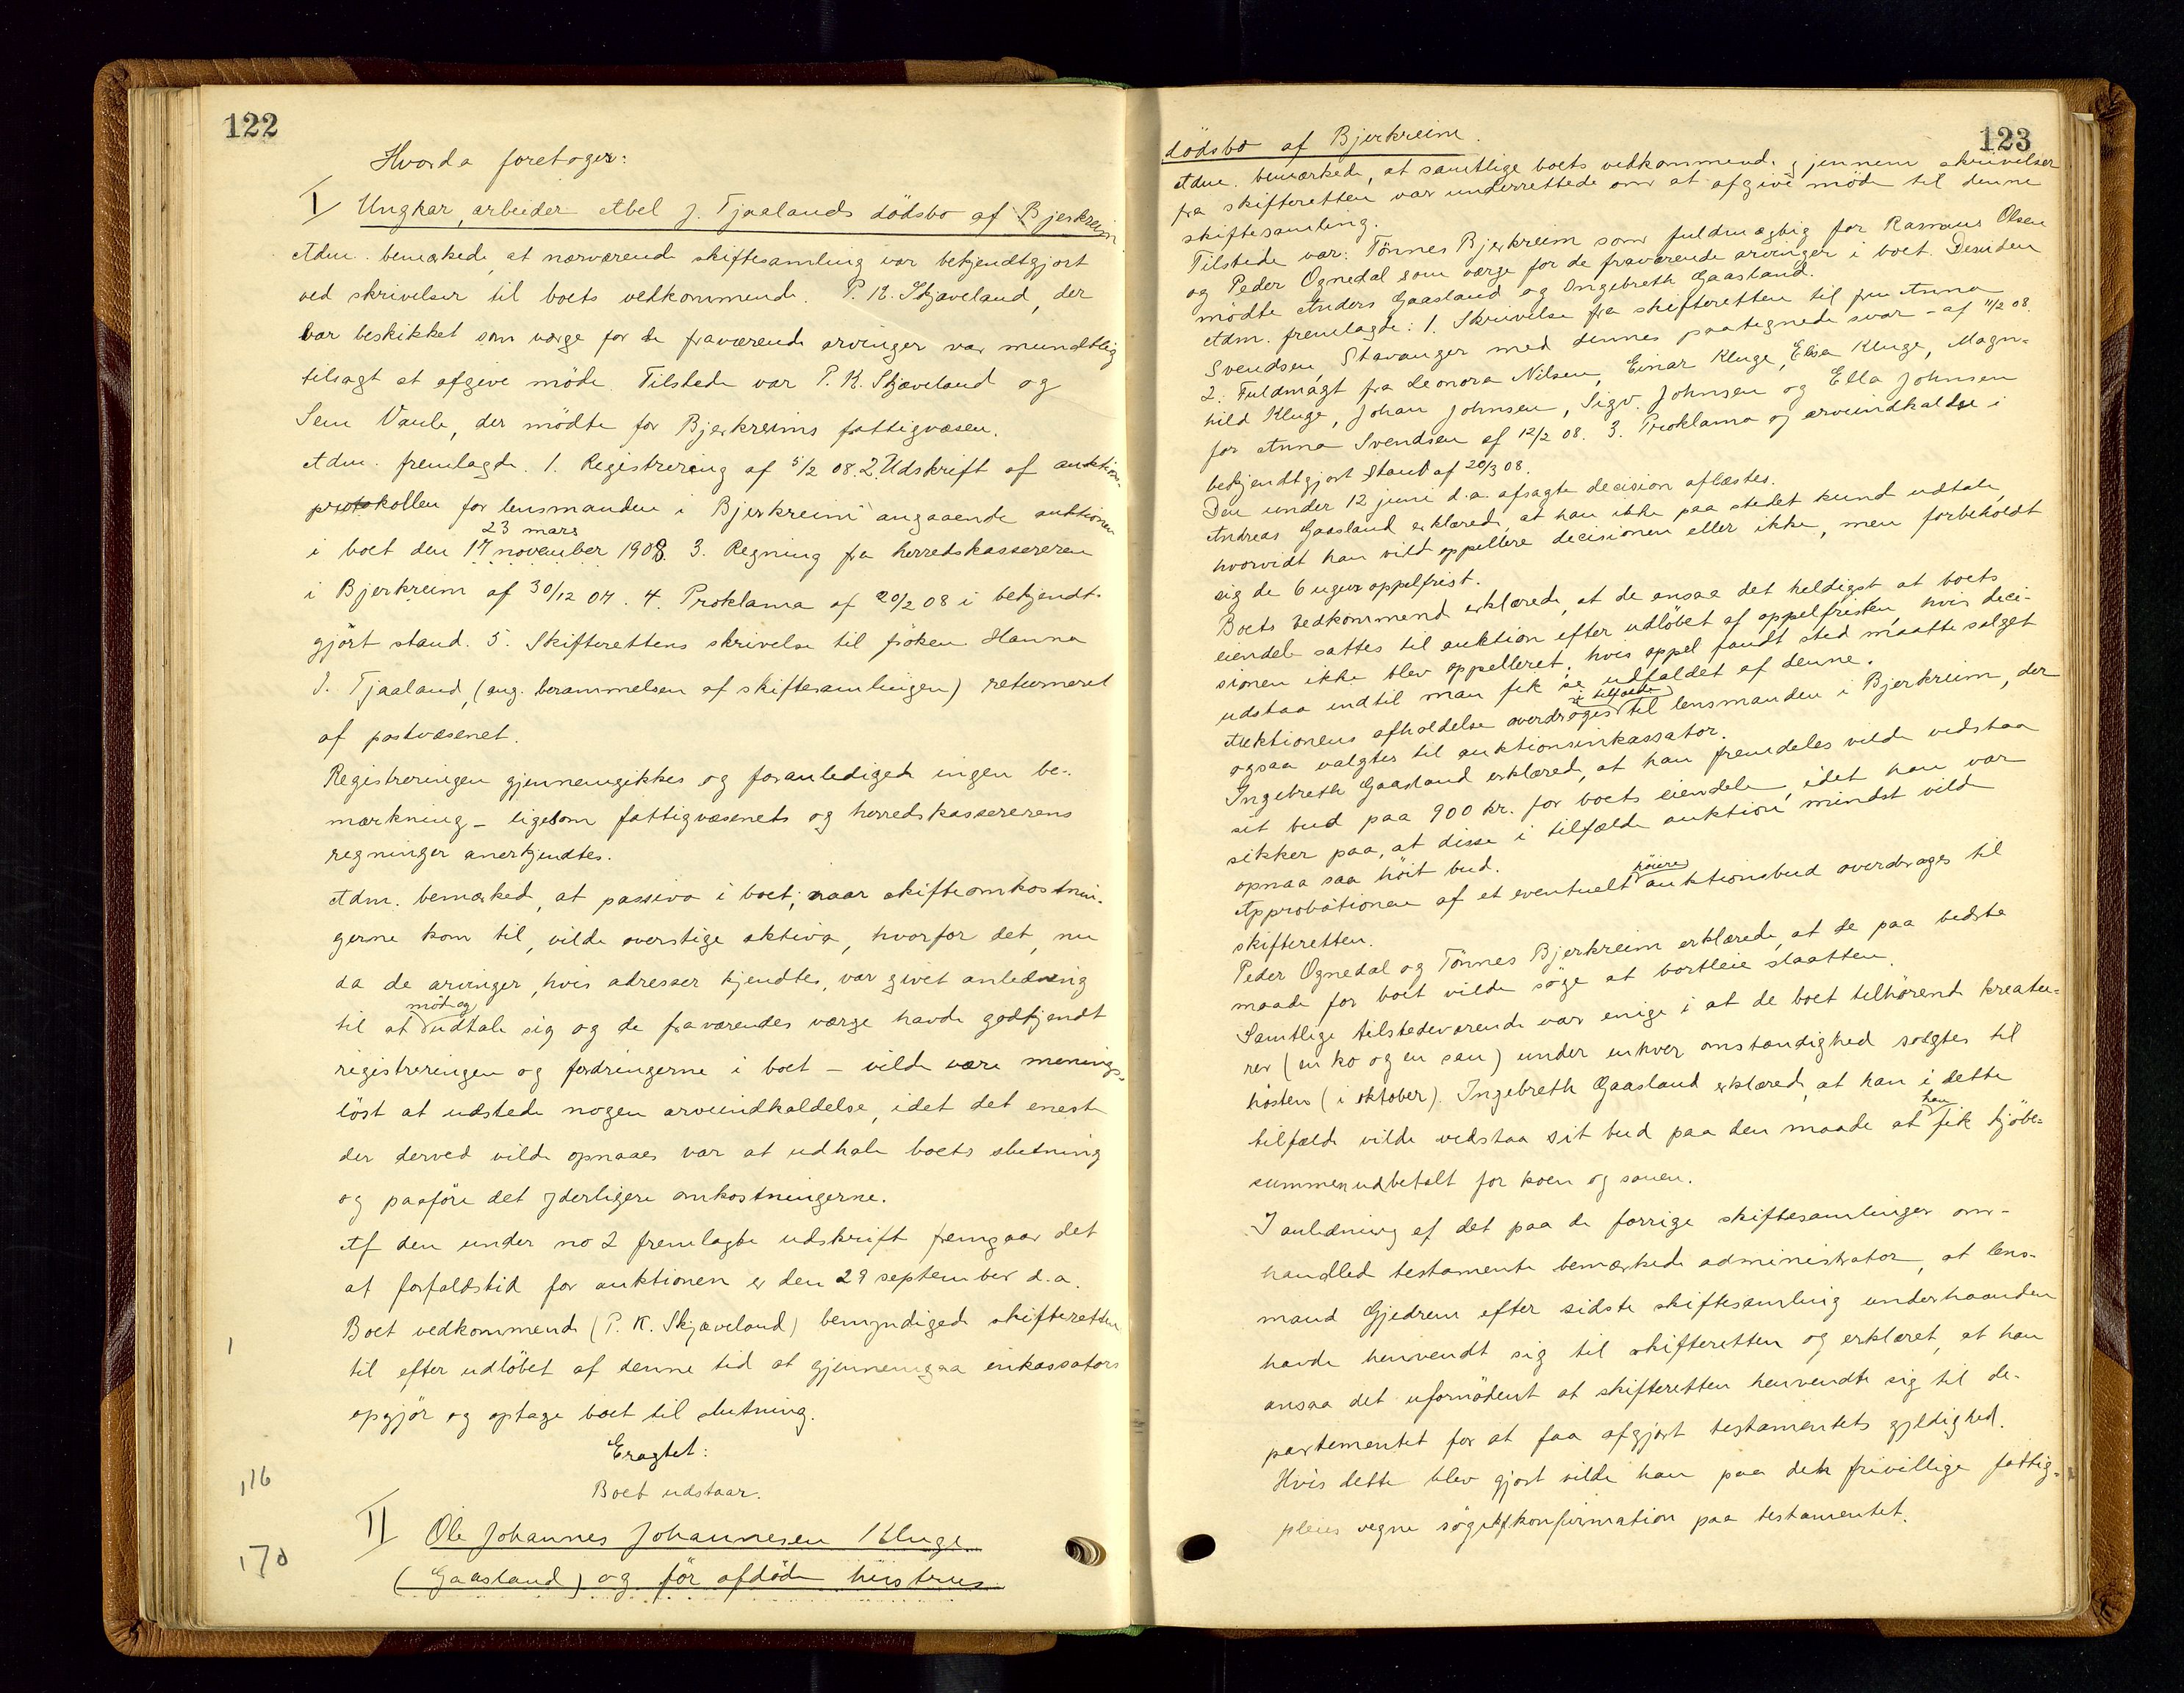 122
Hvorda foretoges:
I Ungkar, arbeider Abel J. Tjaalands dödsbo af Bjerkreim
Adm. bemærkede, at nærværende skiftesamling var bekjendtgjort
ved skrivelser til boets vedkommende. P. K. Skjæveland, der
var beskikket som værge for de fraværende arvinger var mundtlig
tilsagt at afgive möde. Tilstede var P. K. Skjæveland og
Sem Vaule, der mödte for Bjerkreims fattigvæsen.
Adm. fremlagde. 1. Registrering af 5/2 08. 2. Udskrift af auktions-
protokollen for lensmanden i Bjerkreim angaaende auktionen
23 mars
i boet den 17 november 1908. 3. Regning fra herredskassereren
i Bjerkreim af 30/12 07. 4. Proklama af 20/2 08 i bekjendt-
gjort stand. 5. Skifterettens skrivelse til fröken Hanna
J. Tjaaland, (ang. berammelsen af skiftesamlingen) returneret
af postvæsenet.
Registreringen gjennemgikkes og foranledigede ingen be-
mærkning - ligesom fattigvæsenets og herredskassererens
regninger anerkjendtes.
Adm. bemærked, at passiva i boet, naar skifteomkostnin-
gerne kom til, vilde overstige aktiva, hvorfor det, nu
da de arvinger, hvis adresser kjendtes, var givet anledning
möte og
til at udtale sig og de fraværendes værge havde godkjendt
registreringen og fordringerne i boet - vilde være menings-
löst at udstede nogen arveindkaldelse, idet det eneste
der derved vilde opnaaes var at udhale boets slutning
og paaföre det yderligere omkostningerne.
Af den under no 2 fremlagte udskrift fremgaar det
at forfaldstid for auktionen er den 29 september d.a.
Boet vedkommende (P. K. Skjæveland) bemyndigede skifteretten
til efter udlöbet af denne tid at gjennemgaa inkassators
opgjör og optage boet til slutning.
Eragtet:
Boet udstaar.
II Ole Johannes Johannesen Kluge
(Gaasland) og för afdöde hustrus
1
116
170
123
dödsbo af Bjerkreim.
Adm. bemærkede, at samtlige boets vedkommende gjennem skrivelser
fra skifteretten var underrettede om at afgive möde til denne
skiftesamling.
Tilstede var: Tönnes Bjerkreim som fuldmægtig for Rasmus Olsen
og Peder Ognedal som værge for de fraværende arvinger i boet. Desuden
mödte Anders Gaasland og Ingebreth Gaasland.
Adm. fremlagde: 1. Skrivelse fra skifteretten til fru Anna
Svendsen, Stavanger med dennes paategnede svar - af 11/2 08.
2. Fuldmagt fra Leonora Nilsen, Einar Kluge, Elisa Kluge, Magn-
hild Kluge, Johan Johnsen, Sigv. Johnsen og Ella Johnsen
for Anna Svendsen af 12/2 08. 3. Proklama og arveindkaldse i
bekjendtgjort stand af 20/3 08.
Den under 12 juni d.a. afsagte decision oplæstes.
Andreas Gaasland erklærede, at han ikke paa stedet kunde udtale,
hvorvidt han vilde appellere decisionen eller ikke, men forbeholdt
sig de 6 ugers appelfrist.
Boets vedkommende erklærede, at de ansaa det heldigst at boets
eiendele sattes til auktion efter udlöbet af appelfristen, hvis deci-
sionen ikke blev appelleret; hvis appel fandt sted maatte salget
udstaa indtil man fik se udfaldet af denne.
i tilfælde
Auktionens afholdelse overdröges til lensmanden i Bjerkreim, der
ogsaa valgtes til auktionsinkassator.
Ingebreth Gaasland erklærede, at han fremdeles vilde vedstaa
sit bud paa 900 kr. for boets eiendele, idet han var
sikker paa, at disse i tilfælde auktion mindst vilde
opnaa saa höit bud.
höiere
Approbationen af et eventuelt auktionsbud overdrages til
skifteretten.
Peder Ognedal og Tönnes Bjerkreim erklærede, at de paa bedste
maade for boet vilde söge at bortleie slaatten.
Samtlige tilstedeværende var enige i at de boet tilhörende kreatu-
rer (en ko og en sau) under enhver omstændighed solgtes til
hösten (i oktober). Ingebreth Gaasland erklærede, at han i dette
han
tilfælde vilde vedstaa sit bud paa den maade at fik kjöbe-
summen udbetalt for koen og sauen.
I anledning af det paa de forrige skiftesamlinger om-
handlede testamente bemærkede administrator, at lens-
mand Gjedrem efter sidste skiftesamling underhaanden
havde henvendt sig til skifteretten og erklæret, at han
ansaa det ufornödent at skifteretten henvendte sig til de-
partementet for at faa afgjort testamentets gyldighed.
Hvis dette blev gjort vilde han paa den frivillige fattig-
pleies vegne söge konfirmation paa testamentet.